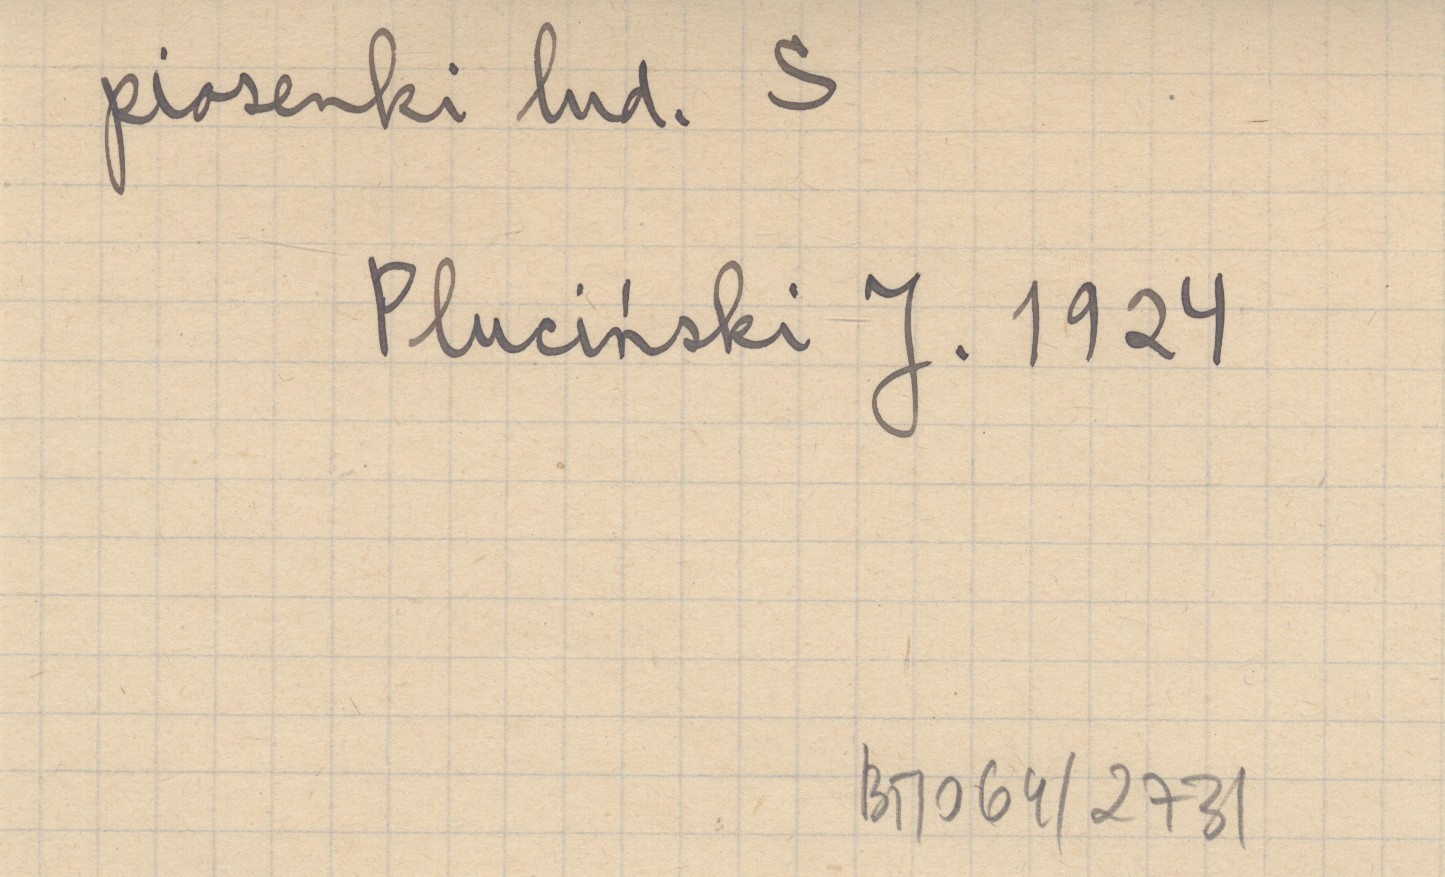 piosenki lud. S
Pluciński J. 1924
ВП064/2731